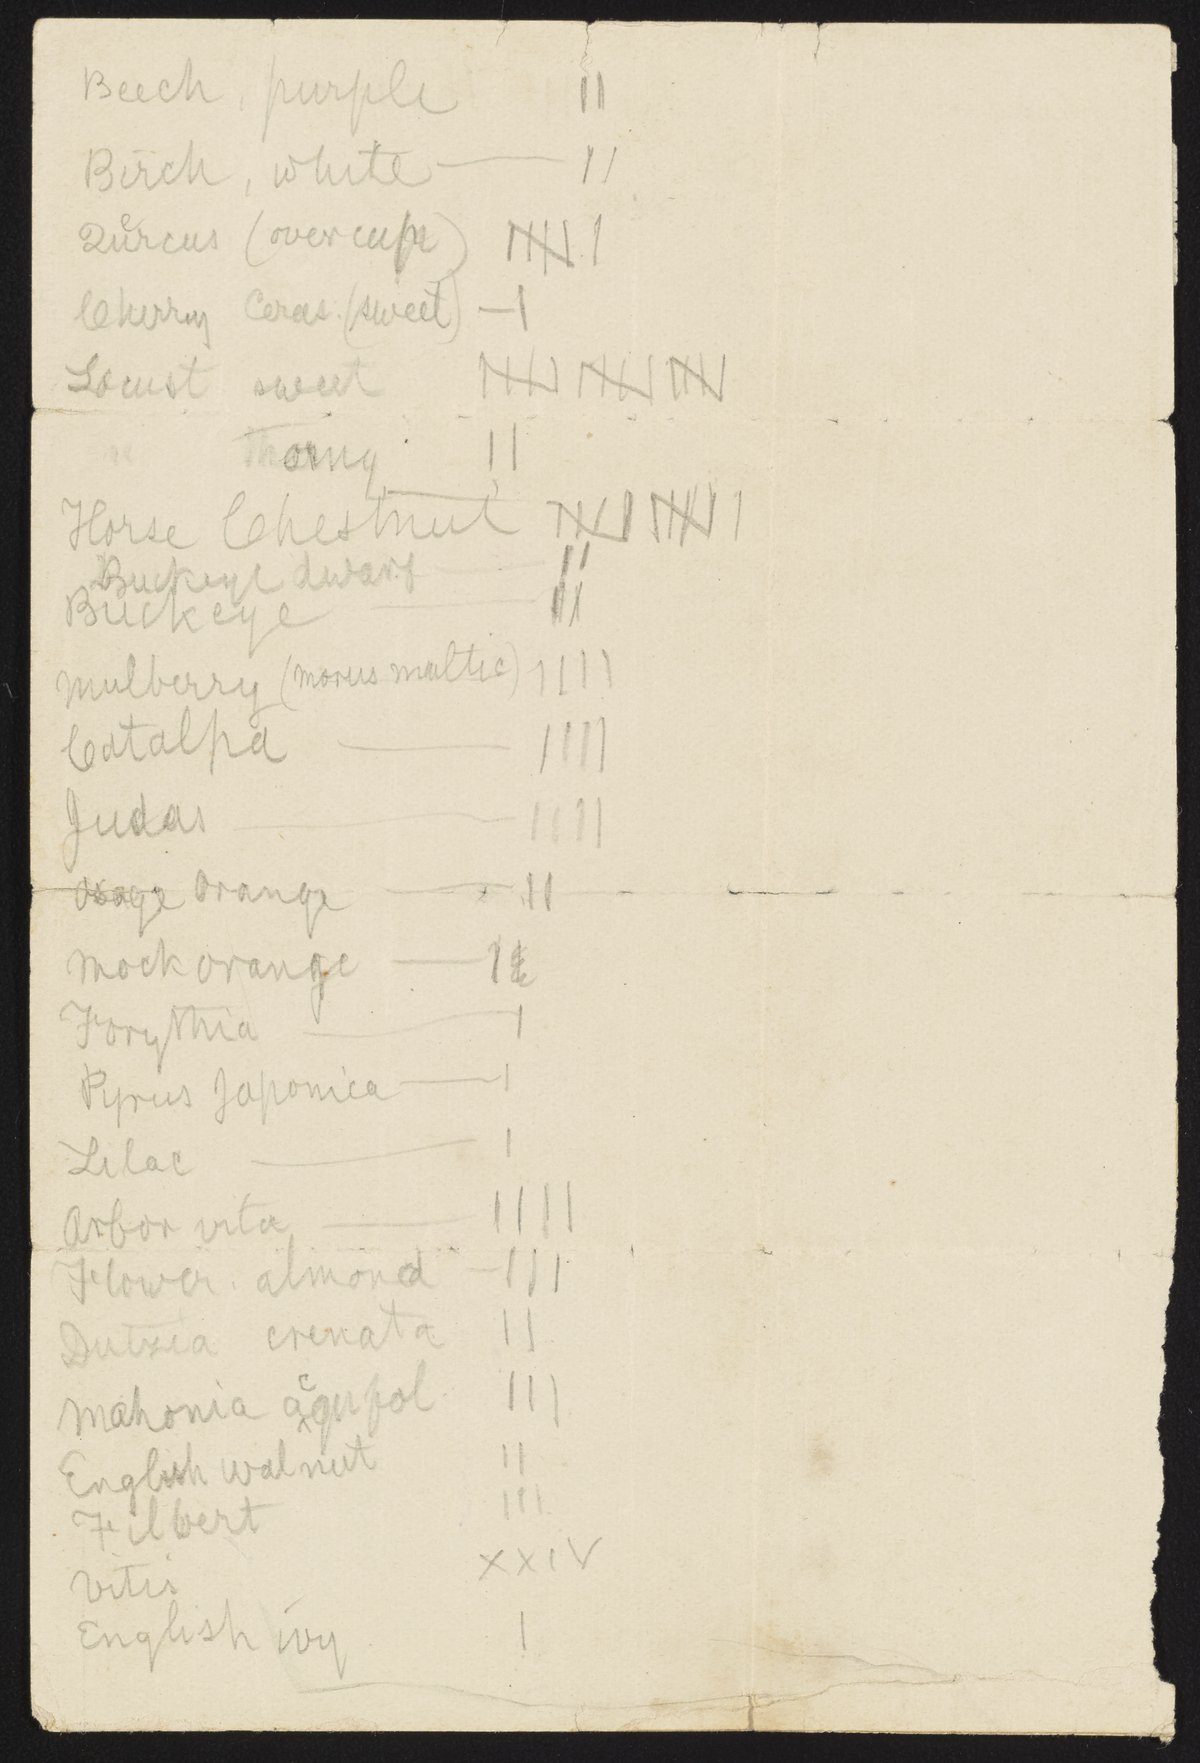 Beech, purple II
Birch, white — II
Qurcus (overcup) IIII I
Cherry Ceras. (sweet) — I
Locust sweet IIII IIII IIII
" Thorny II
Horse Chestnut IIII IIII I
Buckeye dwarf — II
Buckeye — II
Mulberry (morus multic) IIII
Catalpa — IIII
Judas — IIII
Osage Orange — II
Mock orange — I
Forythia — I
Pyrus Japonica — I
Lilac — I
Arbor vita — IIII
Flower. almond — III
Dutzia crenata II
Mahonia acqufol. III
English walnut II
Filbert III
Vitis XXIV
English ivy I